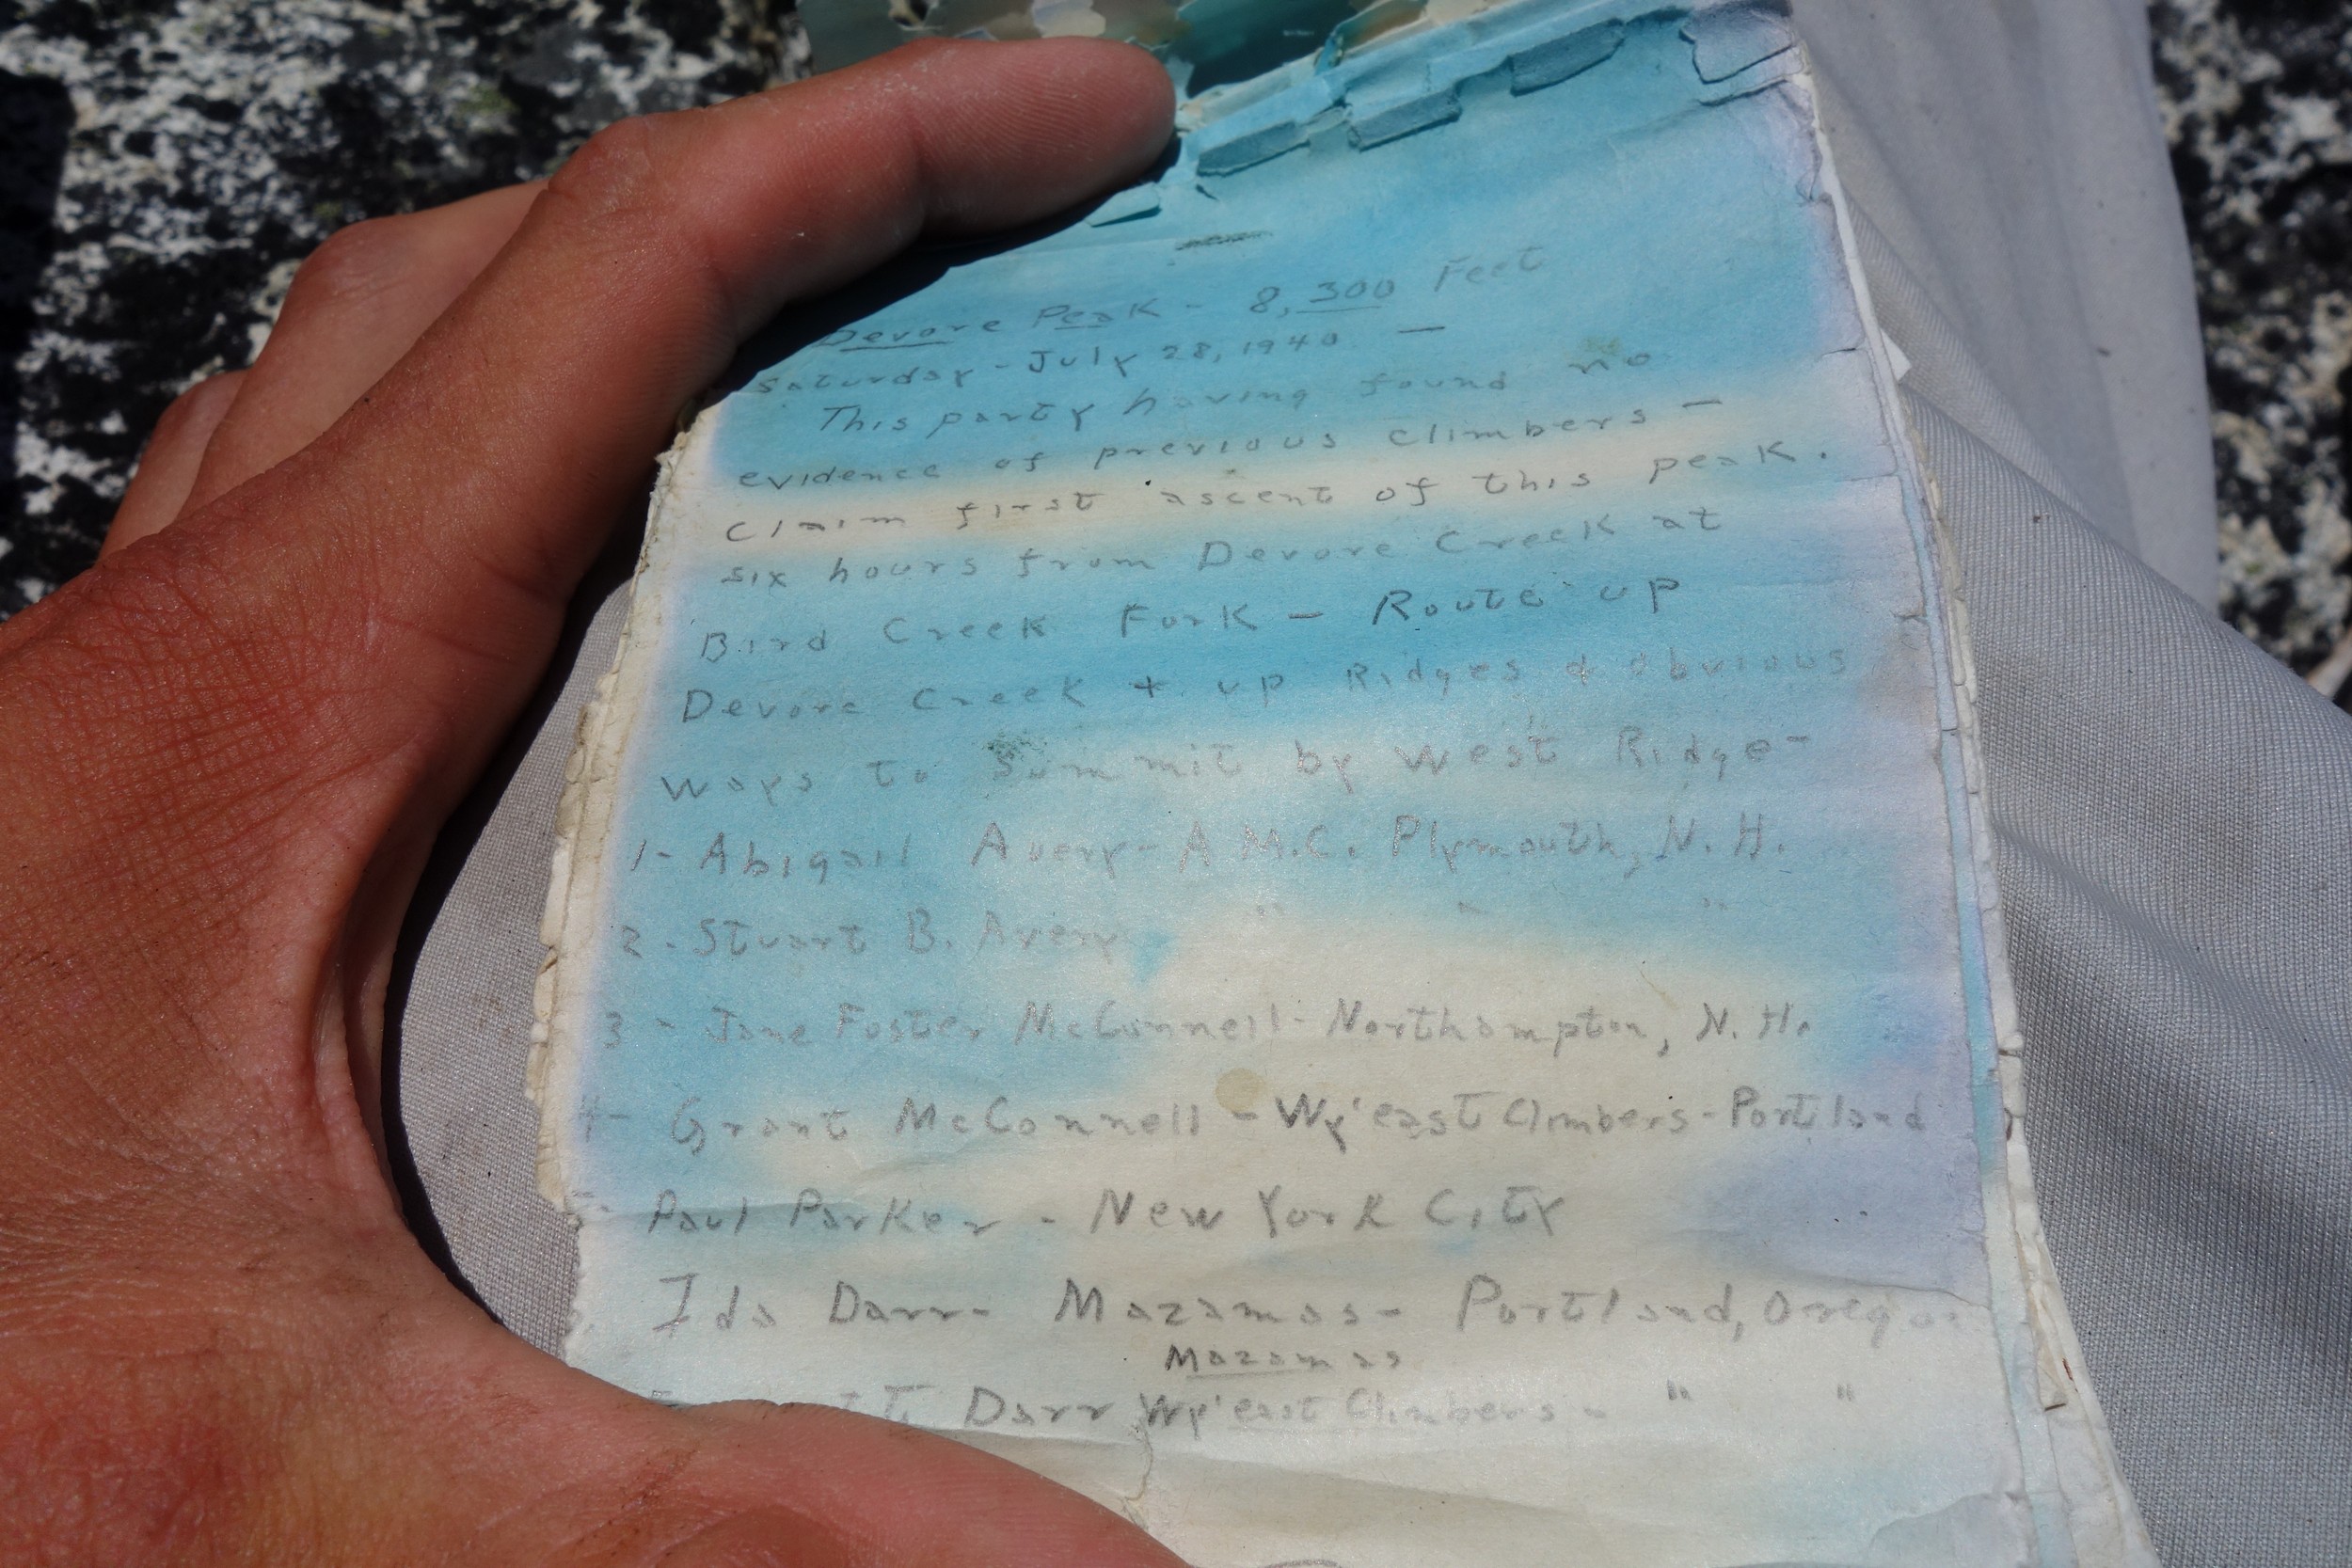 Devore Peak - 8,300 Feet
Saturday - July 28, 1940 —
This party having found no
evidence of previous climbers —
claim first ascent of this peak.
six hours from Devore Creek at
Bird Creek Fork — Route up
Devore Creek + up Ridges & obvious
ways to summit by West Ridge -
1- Abigail Avery - A.M.C. Plymouth, N.H.
2 - Stuart B. Avery " " "
3 - Jane Foster McConnell - Northampton, N.H.
4- Grant McConnell - Wy'east Climbers - Portland
5- Paul Parker - New York City
Ida Darr - Mazamas - Portland, Oregon
Mazamas
Darr Wy'east Climbers - " "